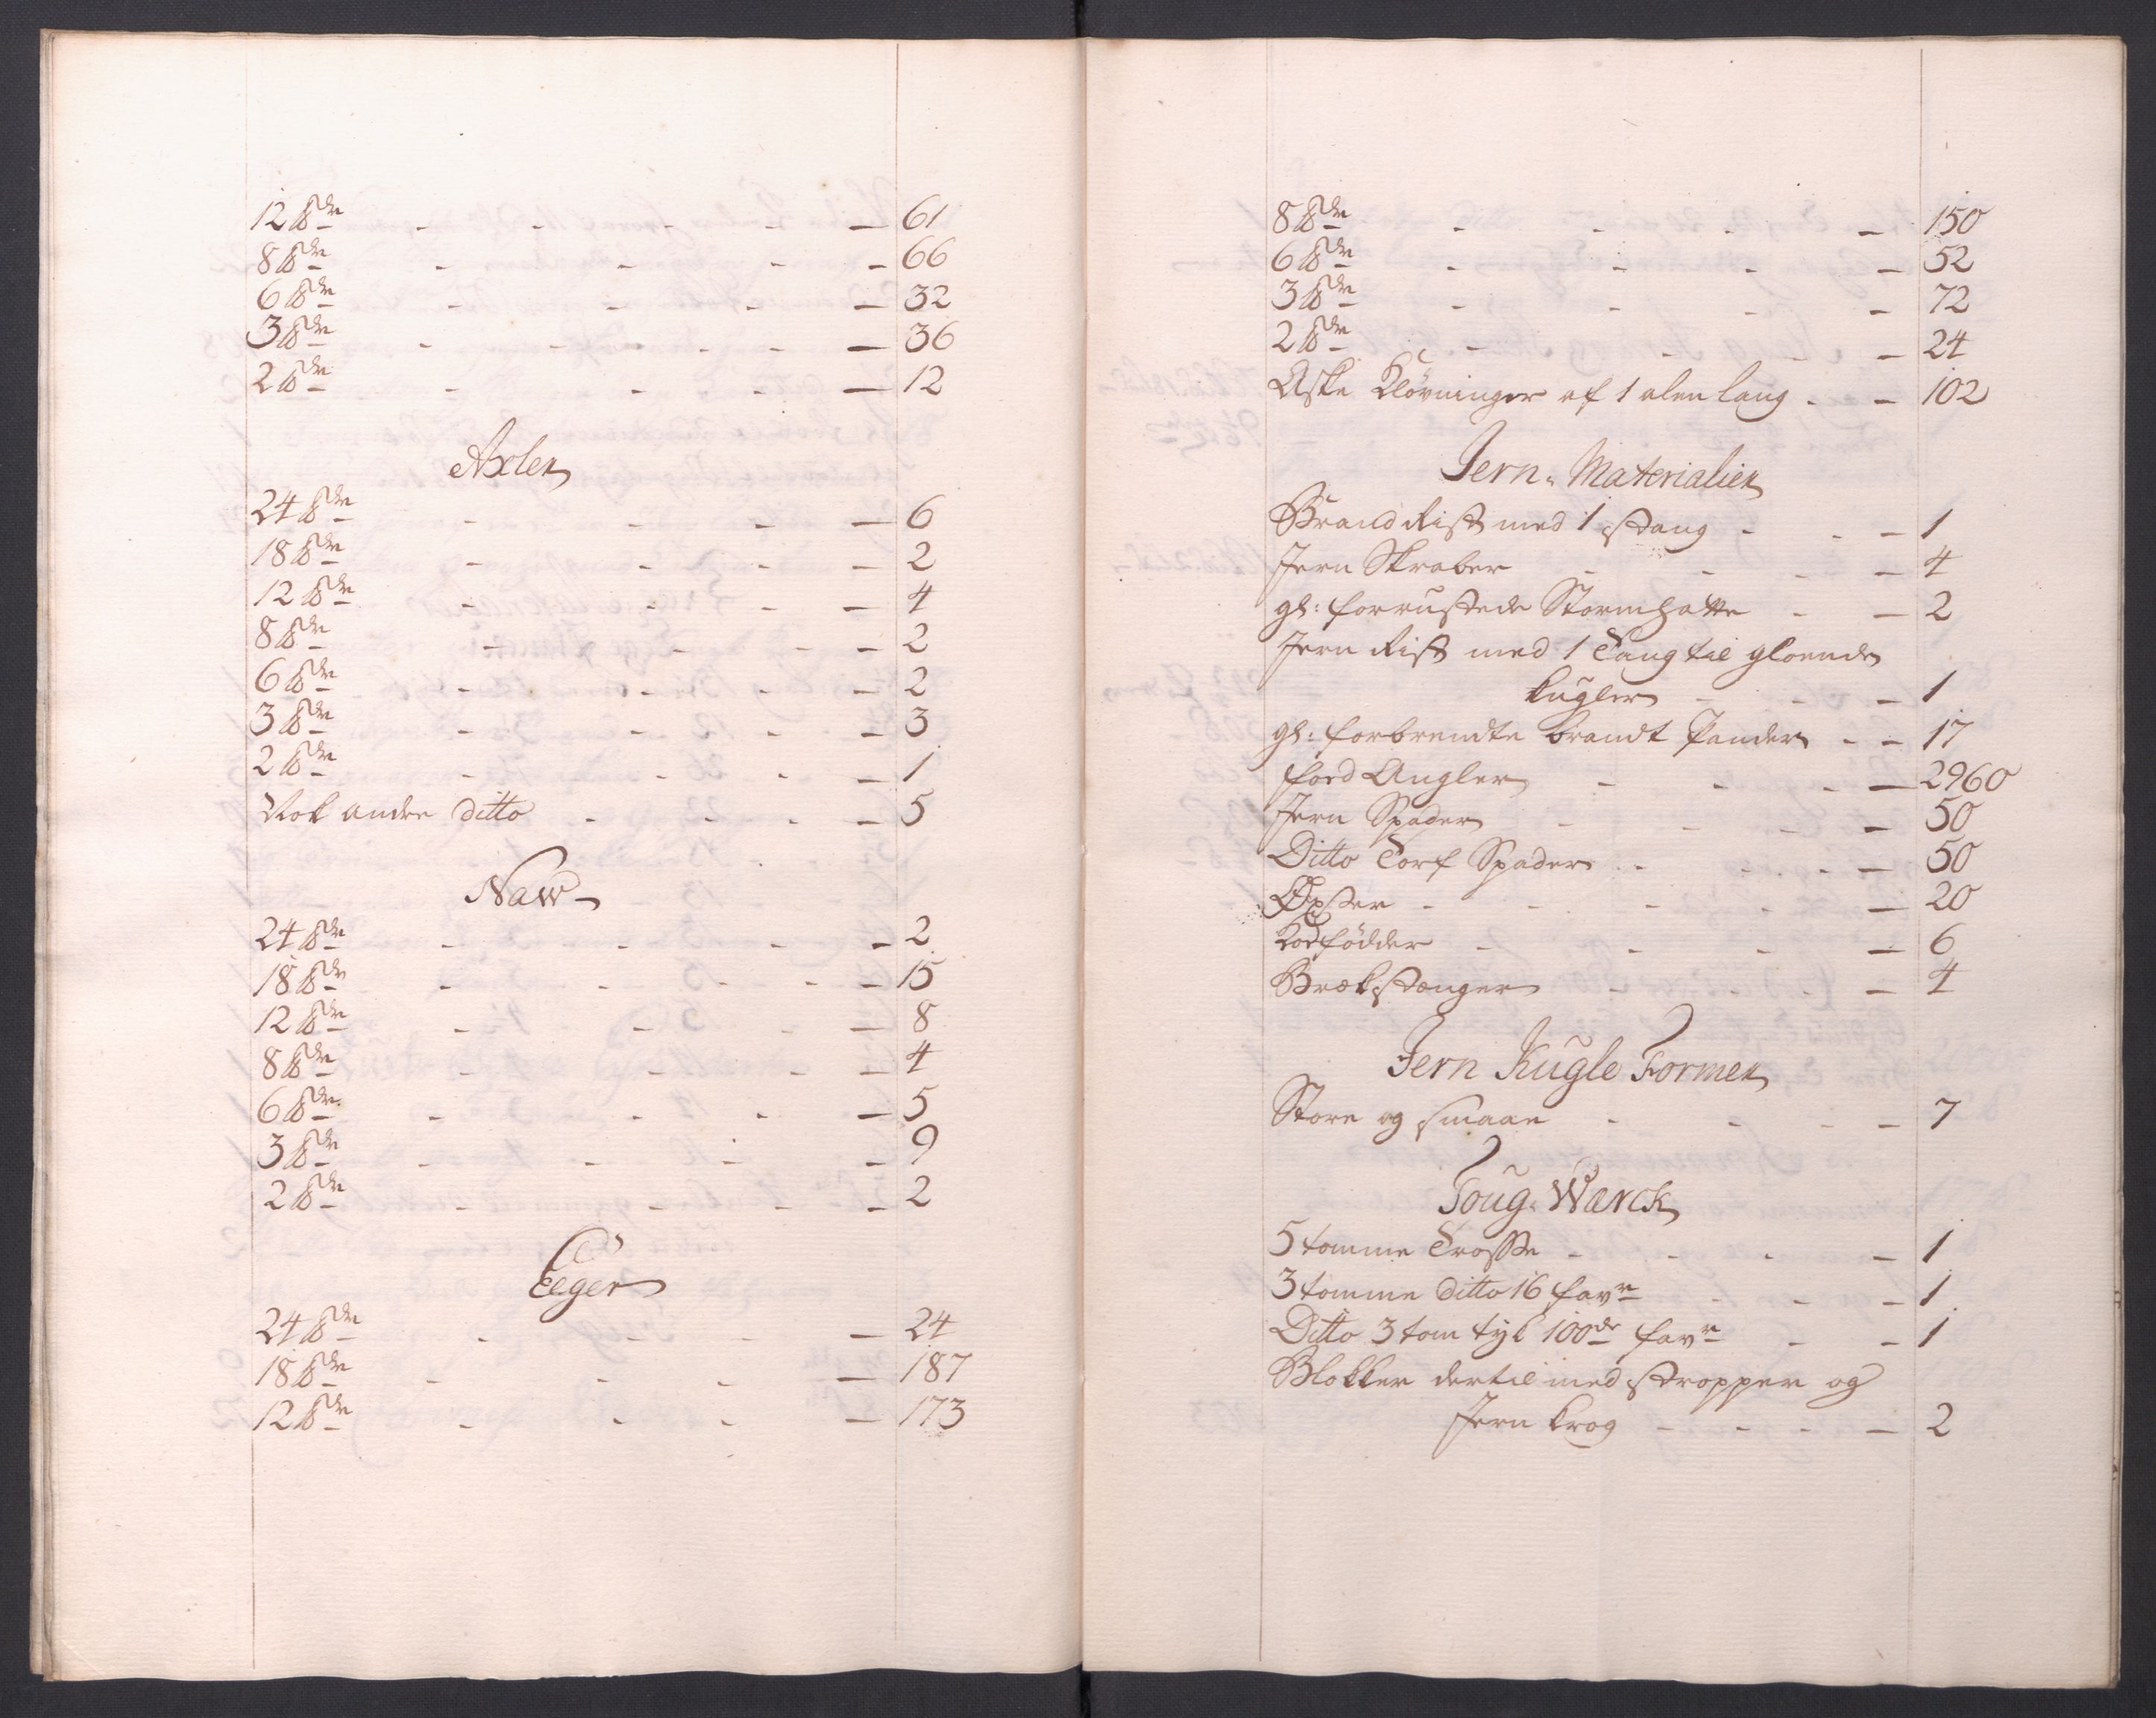 12 ℔de - - - - - 61
8 ℔de - - - - 66
6 ℔de - - - - 32
3 ℔de - - - - - 36
2 ℔de - - - - 12
Axler
24 ℔de - - - - 6
18 ℔de - - - - 2
12 ℔de - - - - 4
8 ℔de - - - - 2
6 ℔de - - - - 2
3 ℔de - - - - 3
2 ℔de - - - - 1
Nok andre ditto - - - - 5
Naw
24 ℔de - - - - 2
18 ℔de - - - - - 15
12 ℔de - - - - 8
8 ℔de - - - - 4
6 ℔de - - - - 5
3 ℔de - - - - 9
2 ℔de - - - - 2
Eeger
24 ℔de - - - - 24
18 ℔de - - - - 187
12 ℔de - - - - 173
8 ℔de - - - - 150
6 ℔de - - - - 52
3 ℔de - - - - 72
2 ℔de - - - - 24
Aske Kløvninger af 1 alen lang - - 102
Jern-Materialier
Brand Rist med 1 stang - - - 1
Jern Skraber - - - - 4
gl: forrustede Stormhatte - - 2
Jern Rist med 1 Tang til gloende
kugler - - - 1
gl: forbrendte brandt Pander - - 17
fod Angler - - - - 2960
Jern Spader - - - - 50
Ditto Torf Spader - - - - 50
Øxser - - - - - 20
Kodfødder - - - - 6
Brækstænger - - - - 4
Jern Kugle Former
Store og smaae - - - - 7
Toug-Wærck
5 tomme Trosse - - - - 1
3 tomme ditto 16 favn - - - 1
Ditto 3 tom tyk 100de favn - - 1
Blokker dertil med stropper og
Jern krog - - - - 2